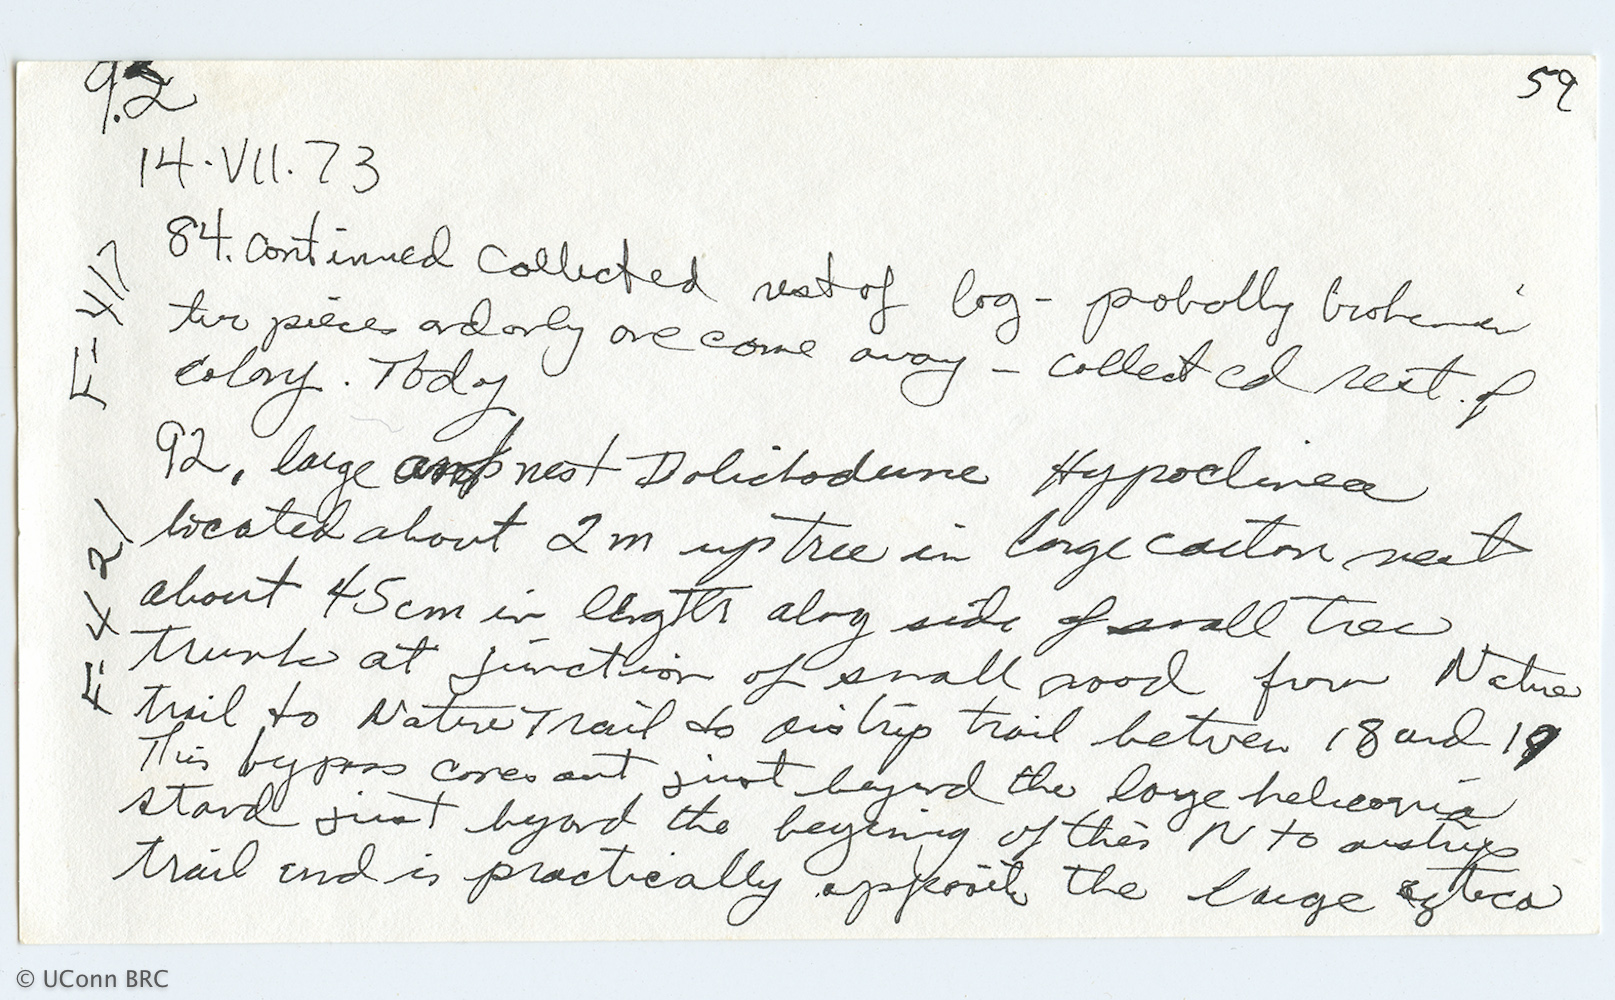 92
59
14.VII.73
84. continued collected rest of log - probally broken in
two pieces and only one came away - collected rest of
colony. Today
F-417
92. large nest Dolichoderine Hypoclinea
located about 2m up tree in large carton nest
about 45cm in length along side of small tree
trunk at junction of small road from Nature
trail to Nature Trail to airstrip trail between 18 and 19
This bypass comes out just beyond the large heliconia
stand just beyond the begining of this N to airstrip
trail end is practically opposite the large azteca
F-421
© UConn BRC